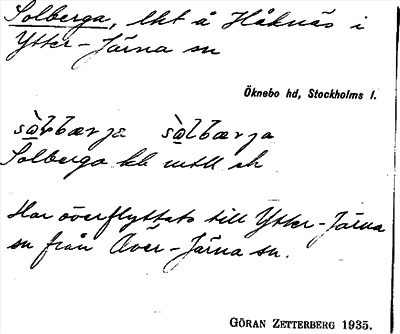 Solberga, lht å Håknäs i
Ytter-Järna sn
Öknebo hd, Stockholms l.
sòlbærja sòlbærja
Solberga kb mtl ek
Har överflyttats till Ytter-Järna
sn från Över-Järna sn.
GÖRAN ZETTERBERG 1935.